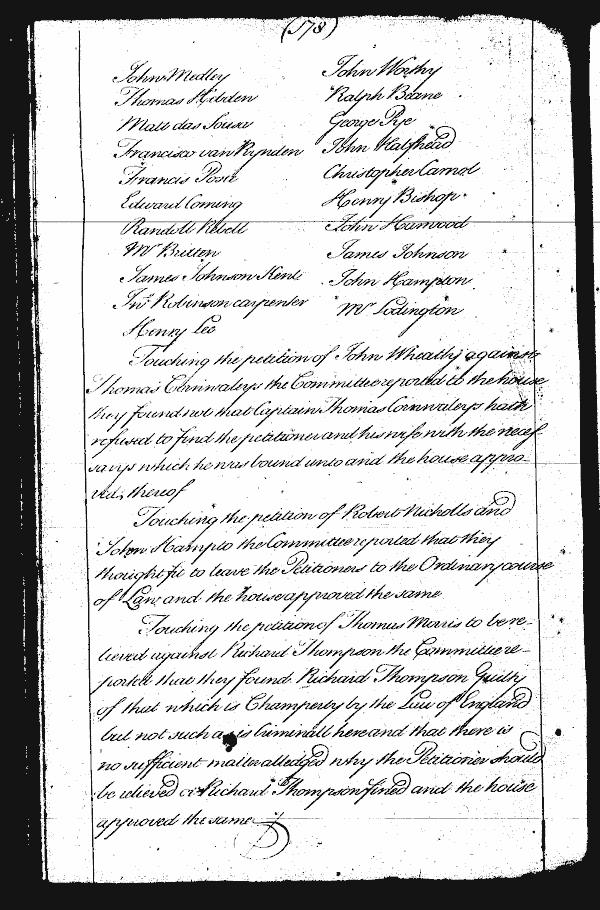 (178)
John Medley
Thomas Hebden
Matt das Sousa
Francisco van Rynden
Francis Posie
Edward Coming
Randoll Revell
Mr Britten
James Johnson Kent
Jno Robinson carpenter
Henry Lee
John Worthy
Ralph Beane
George Pye
John Halfhead
Christopher Carnol
Henry Bishop
John Harwood
James Johnson
John Hampton
Mr Lodington
Touching the petition of John Wheatly against
Thomas Cornwaleys the Committee reported to the house
they found not that Captain Thomas Cornwaleys hath
refused to find the petitioner and his wife with the necess
sarys which he was bound unto and the house appro-
ved thereof
Touching the petition of Robert Nicholls and
John Hampto the Committee reported that they
thought fit to leave the Petitioners to the Ordinary course
of Law and the house approved the same
Touching the petition of Thomas Morris to be re-
lieved against Richard Thompson the Committee re-
ported that they found Richard Thompson Guilty
of that which is Champerty by the Law of England
but not such as is Criminall here and that there is
no sufficient matter alledged why the Petitioner should
be relieved or Richard Thompson fined and the house
approved the same